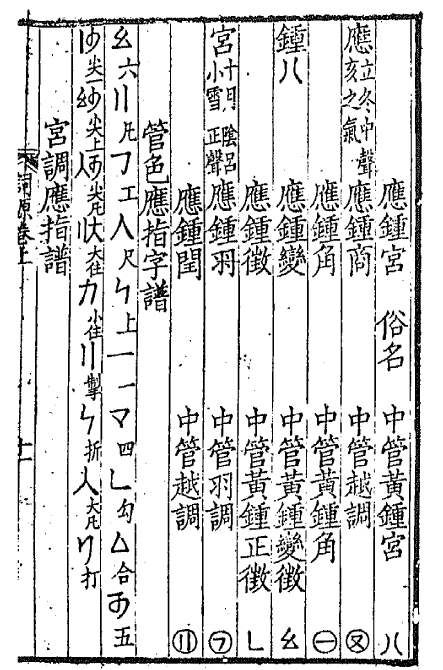 應鍾宮 俗名 中管黃鍾宮 八
應 立冬中聲 亥之氣 應鍾商 中管越調
應鍾角 中管黃鍾角 ㊀
鍾 八 應鍾變 中管黃鍾變徵 幺
應鍾徵 中管黃鍾正徵 ㄴ
宮 十月 陰呂 小雪 正聲 應鍾羽 中管羽調 ㋫
應鍾閏 中管越調
管色應指字譜
幺 六 〢 凡 フ 工 人 尺 ㄣ 上 一 一 マ 四 ㄴ 勾 ム 合 五
尖一 尖上 尖凡 大住 力 小住 〢 掣 ㄣ 折 人 大凡 リ 打
宮調應指譜
詞源卷上 十一